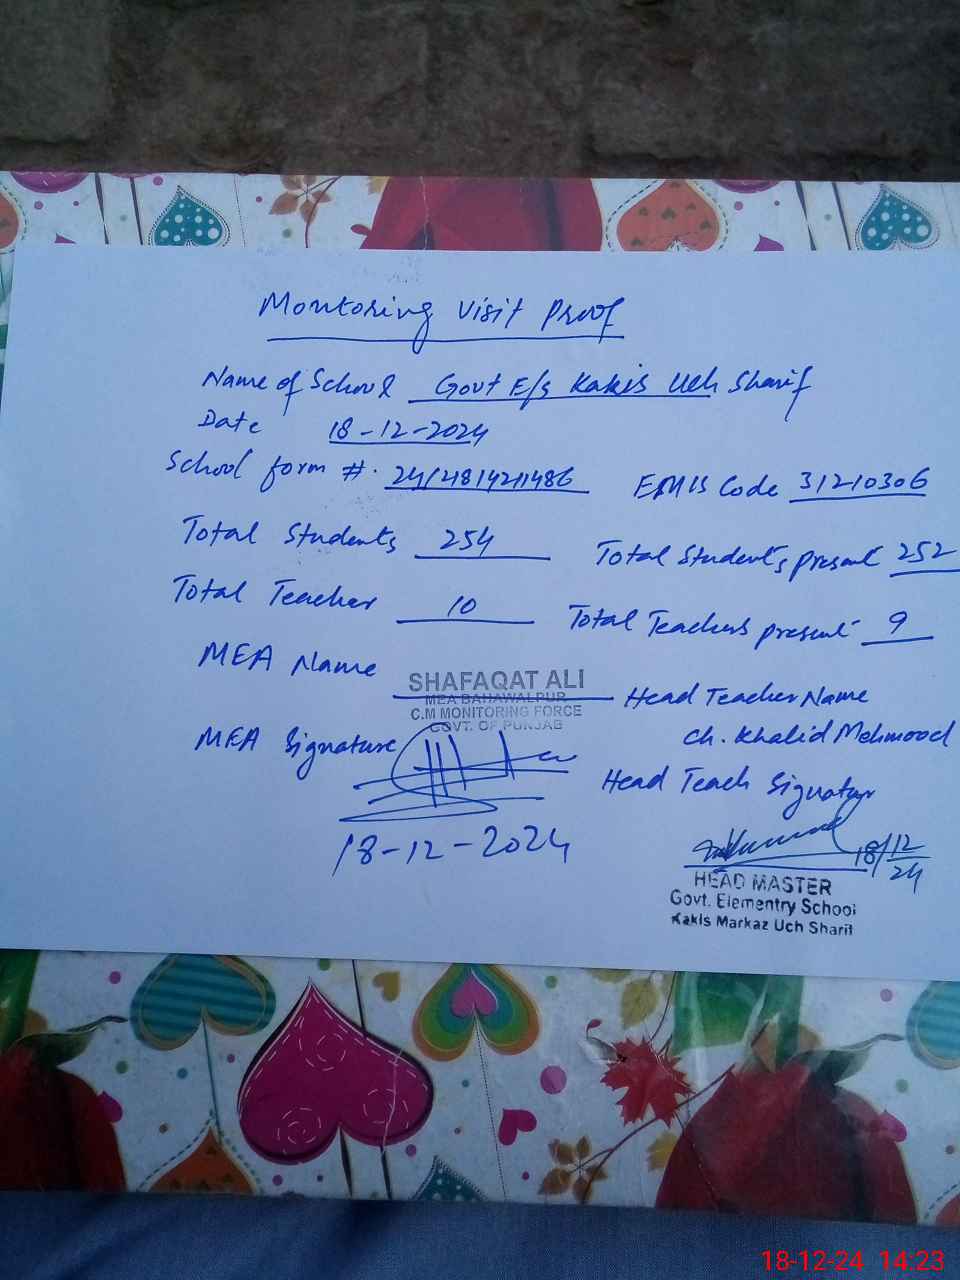 Montoring Visit Proof
Name of School Govt E/s Kakis Uch Sharif
Date 18-12-2024
School form #. 24/21814211486 EMIS Code 31210306
Total Students 254 Total Students present 252
Total Teacher 10 Total Teachers present 9
MEA Name SHAFAQAT ALI
MEA BAHAWALPUR
C.M MONITORING FORCE
GOVT. OF PUNJAB
Head Teacher Name
Ch. Khalid Mehmood
MEA Signature
18-12-2024
Head Teach Signatur
18/12/24
HEAD MASTER
Govt. Elementry School
Kakis Markaz Uch Sharif
18-12-24 14:23